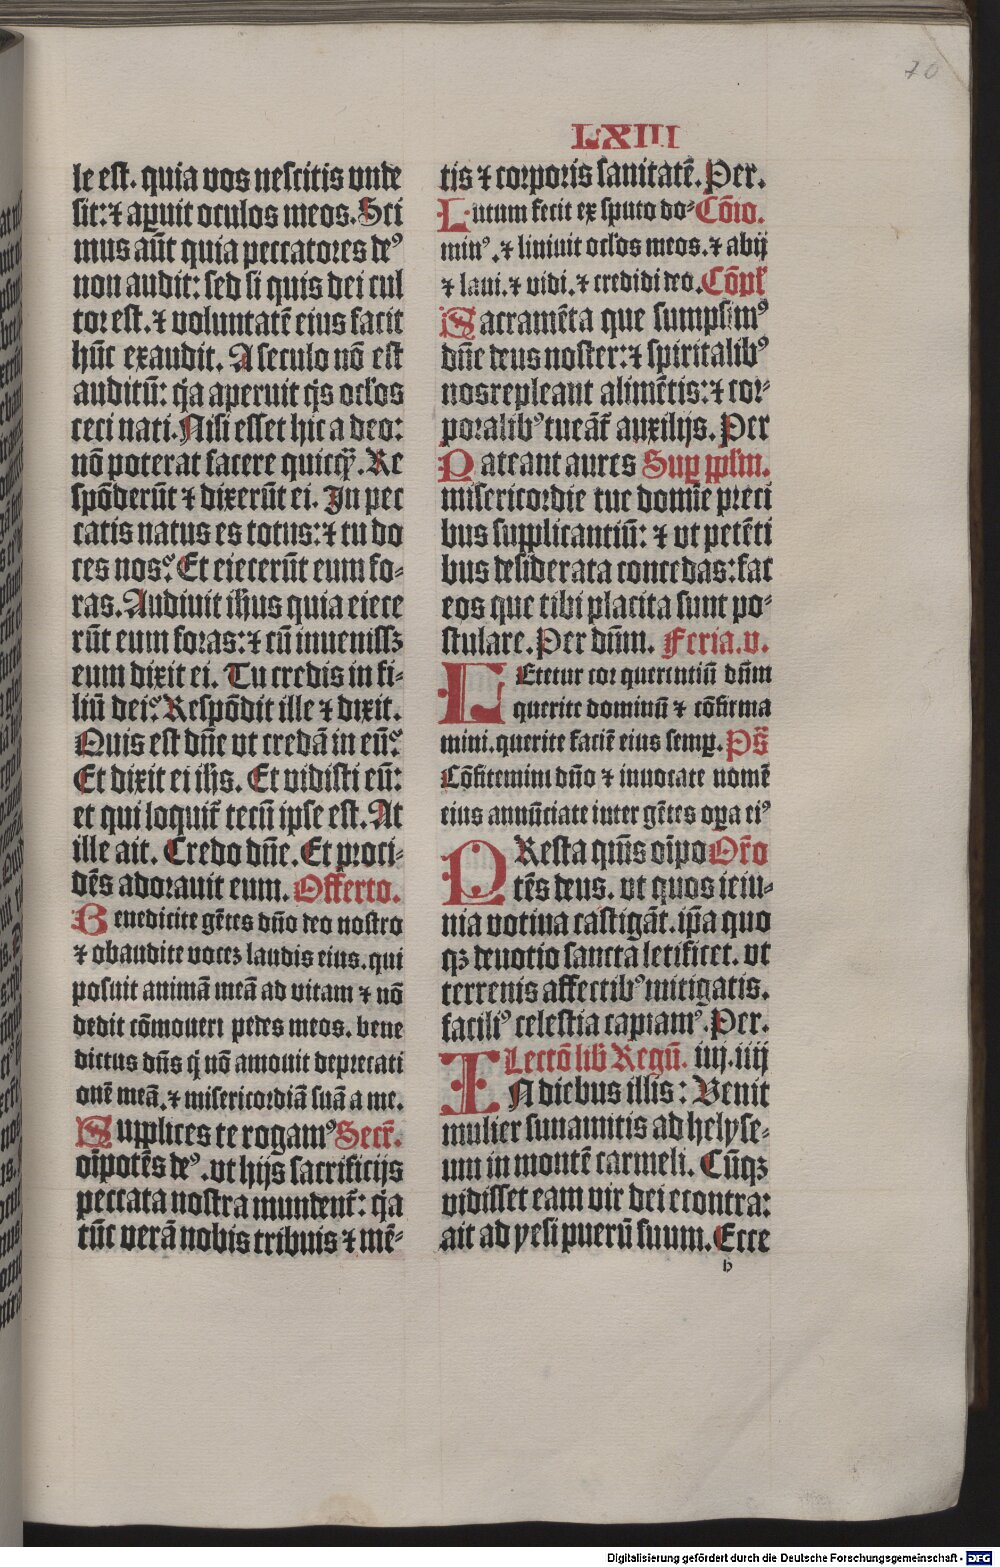 70
LXIII
le est. quia vos nescitis vnde
sit: ⁊ aꝑuit oculos meos. Sci
mus aūt quia peccatores deꝰ
non audit: sed si quis dei cul
tor est. ⁊ voluntatē eius facit
hūc exaudit. A seculo nō est
auditū: q̄a aperuit q̄s oc̄los
ceci nati. Nisi esset hic a deo:
nō poterat facere quicq̄. Re
spōderūt ⁊ dixerūt ei. In pec
catis natus es totus: ⁊ tu do
ces nos? Et eiecerūt eum fo-
ras. Audiuit ih̄us quia eiece
rūt eum foras: ⁊ cū inuenissꝫ
eum dixit ei. Tu credis in fi-
liū dei? Respōdit ille ⁊ dixit.
Quis est dn̄e vt credā in eū?
Et dixit ei ih̄s. Et vidisti eū:
et qui loquit̄ tecū ipse est. At
ille ait. Credo dn̄e. Et proci-
dēs adorauit eum. Offerto.
Benedicite gētes dn̄o deo nostro
⁊ obaudite vocez laudis eius. qui
posuit animā meā ad vitam ⁊ nō
dedit cōmoueri pedes meos. bene
dictus dn̄s q̄ nō amouit deprecati
onē meā. ⁊ misericordiā suā a me.
Supplices te rogamꝰ Secr̄.
oīpotēs deꝰ. vt hijs sacrificijs
peccata nostra mundent̄: q̄a
tūc verā nobis tribuis ⁊ mē-
tis ⁊ corporis sanitatē. Per.
Lutum fecit ex sputo do- Cōio.
minꝰ. ⁊ liniuit oc̄los meos. ⁊ abij
⁊ laui. ⁊ vidi. ⁊ credidi deo. Cōpl̄
Sacramēta que sumpsimꝰ
dn̄e deus noster: ⁊ spiritalibꝰ
nos repleant alimētis: ⁊ cor-
poralibꝰ tueāt̄ auxilijs. Per
Pateant aures Suꝑ ppl̄m.
misericordie tue domīe preci
bus supplicantiū: ⁊ vt petēti
bus desiderata concedas: fac
eos que tibi placita sunt po-
stulare. Per dn̄m. Feria. v.
LEtetur cor querentiū dn̄m
querite dominū ⁊ cōfirma
mini. querite faciē eius semꝑ. Ps̄
Cōfitemini dn̄o ⁊ inuocate nomē
eius annūciate inter gētes oꝑa eiꝰ
PResta qm̄s oīpo Or̄o
tēs deus. vt quos ieiu-
nia votiua castigāt. ip̄a quo
qꝫ deuotio sancta letificet. vt
terrenis affectibꝰ mitigatis.
faciliꝰ celestia capiamꝰ. Per.
Lectō lib Regū. iiij. iiij
IN diebus illis: Venit
mulier sunamitis ad helyse-
um in montē carmeli. Cūqꝫ
vidisset eam vir dei econtra:
ait ad yesi puerū suum. Ecce
h
Digitalisierung gefördert durch die Deutsche Forschungsgemeinschaft - DFG